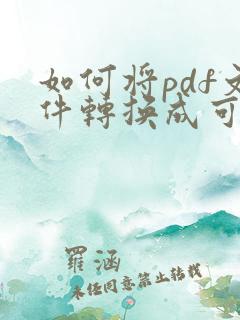 如何将pdf文
件轉換成可
羅涵
未经同意禁止转载